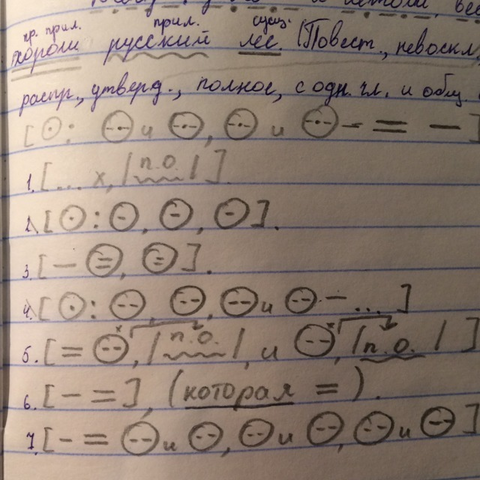 кр. прил. прил. сущ.
хорош русский лес. (Повест., невоскл,
распр, утверд., полное, с одн. гл. и общ.
[⊙: ⊙ и ⊙, ⊙ и ⊙ – = –]
1. [... х, | п.о. |].
2. [⊙: ⊖, ⊖, ⊖].
3. [– ⊜, ⊜].
4. [⊙: ⊖, ⊖, ⊖ и ⊖ – ...]
5. [= ⊖ х, | п.о. |, и ⊖ х, | п.о. |]
6. [– =], (которая =).
7. [– = ⊖ и ⊖, ⊖ и ⊖, ⊖ и ⊖]